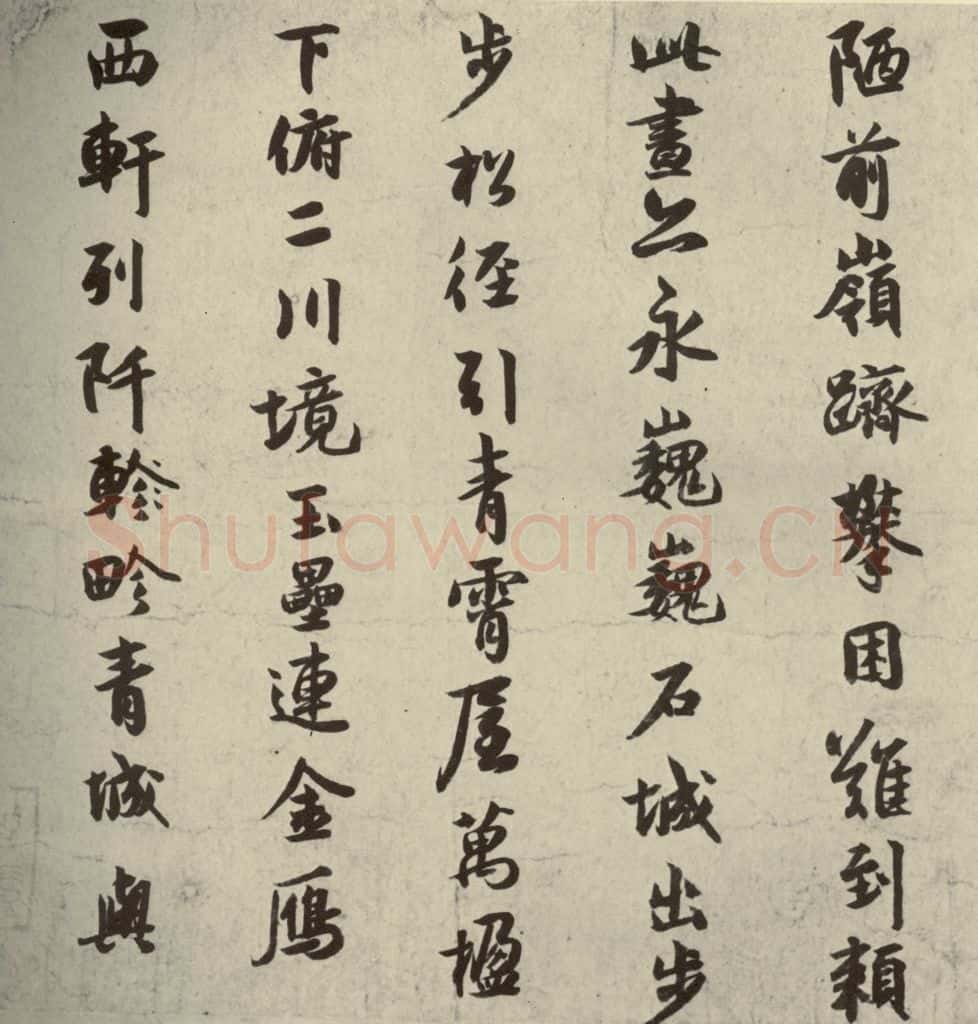 陋前嶺躋攀困難到賴
此畫永巍巍石城出步
步松徑引青霄屋萬楹
下俯二川境玉壘連金鴈
西軒列阡軫畛青城與
Shufawang.cn